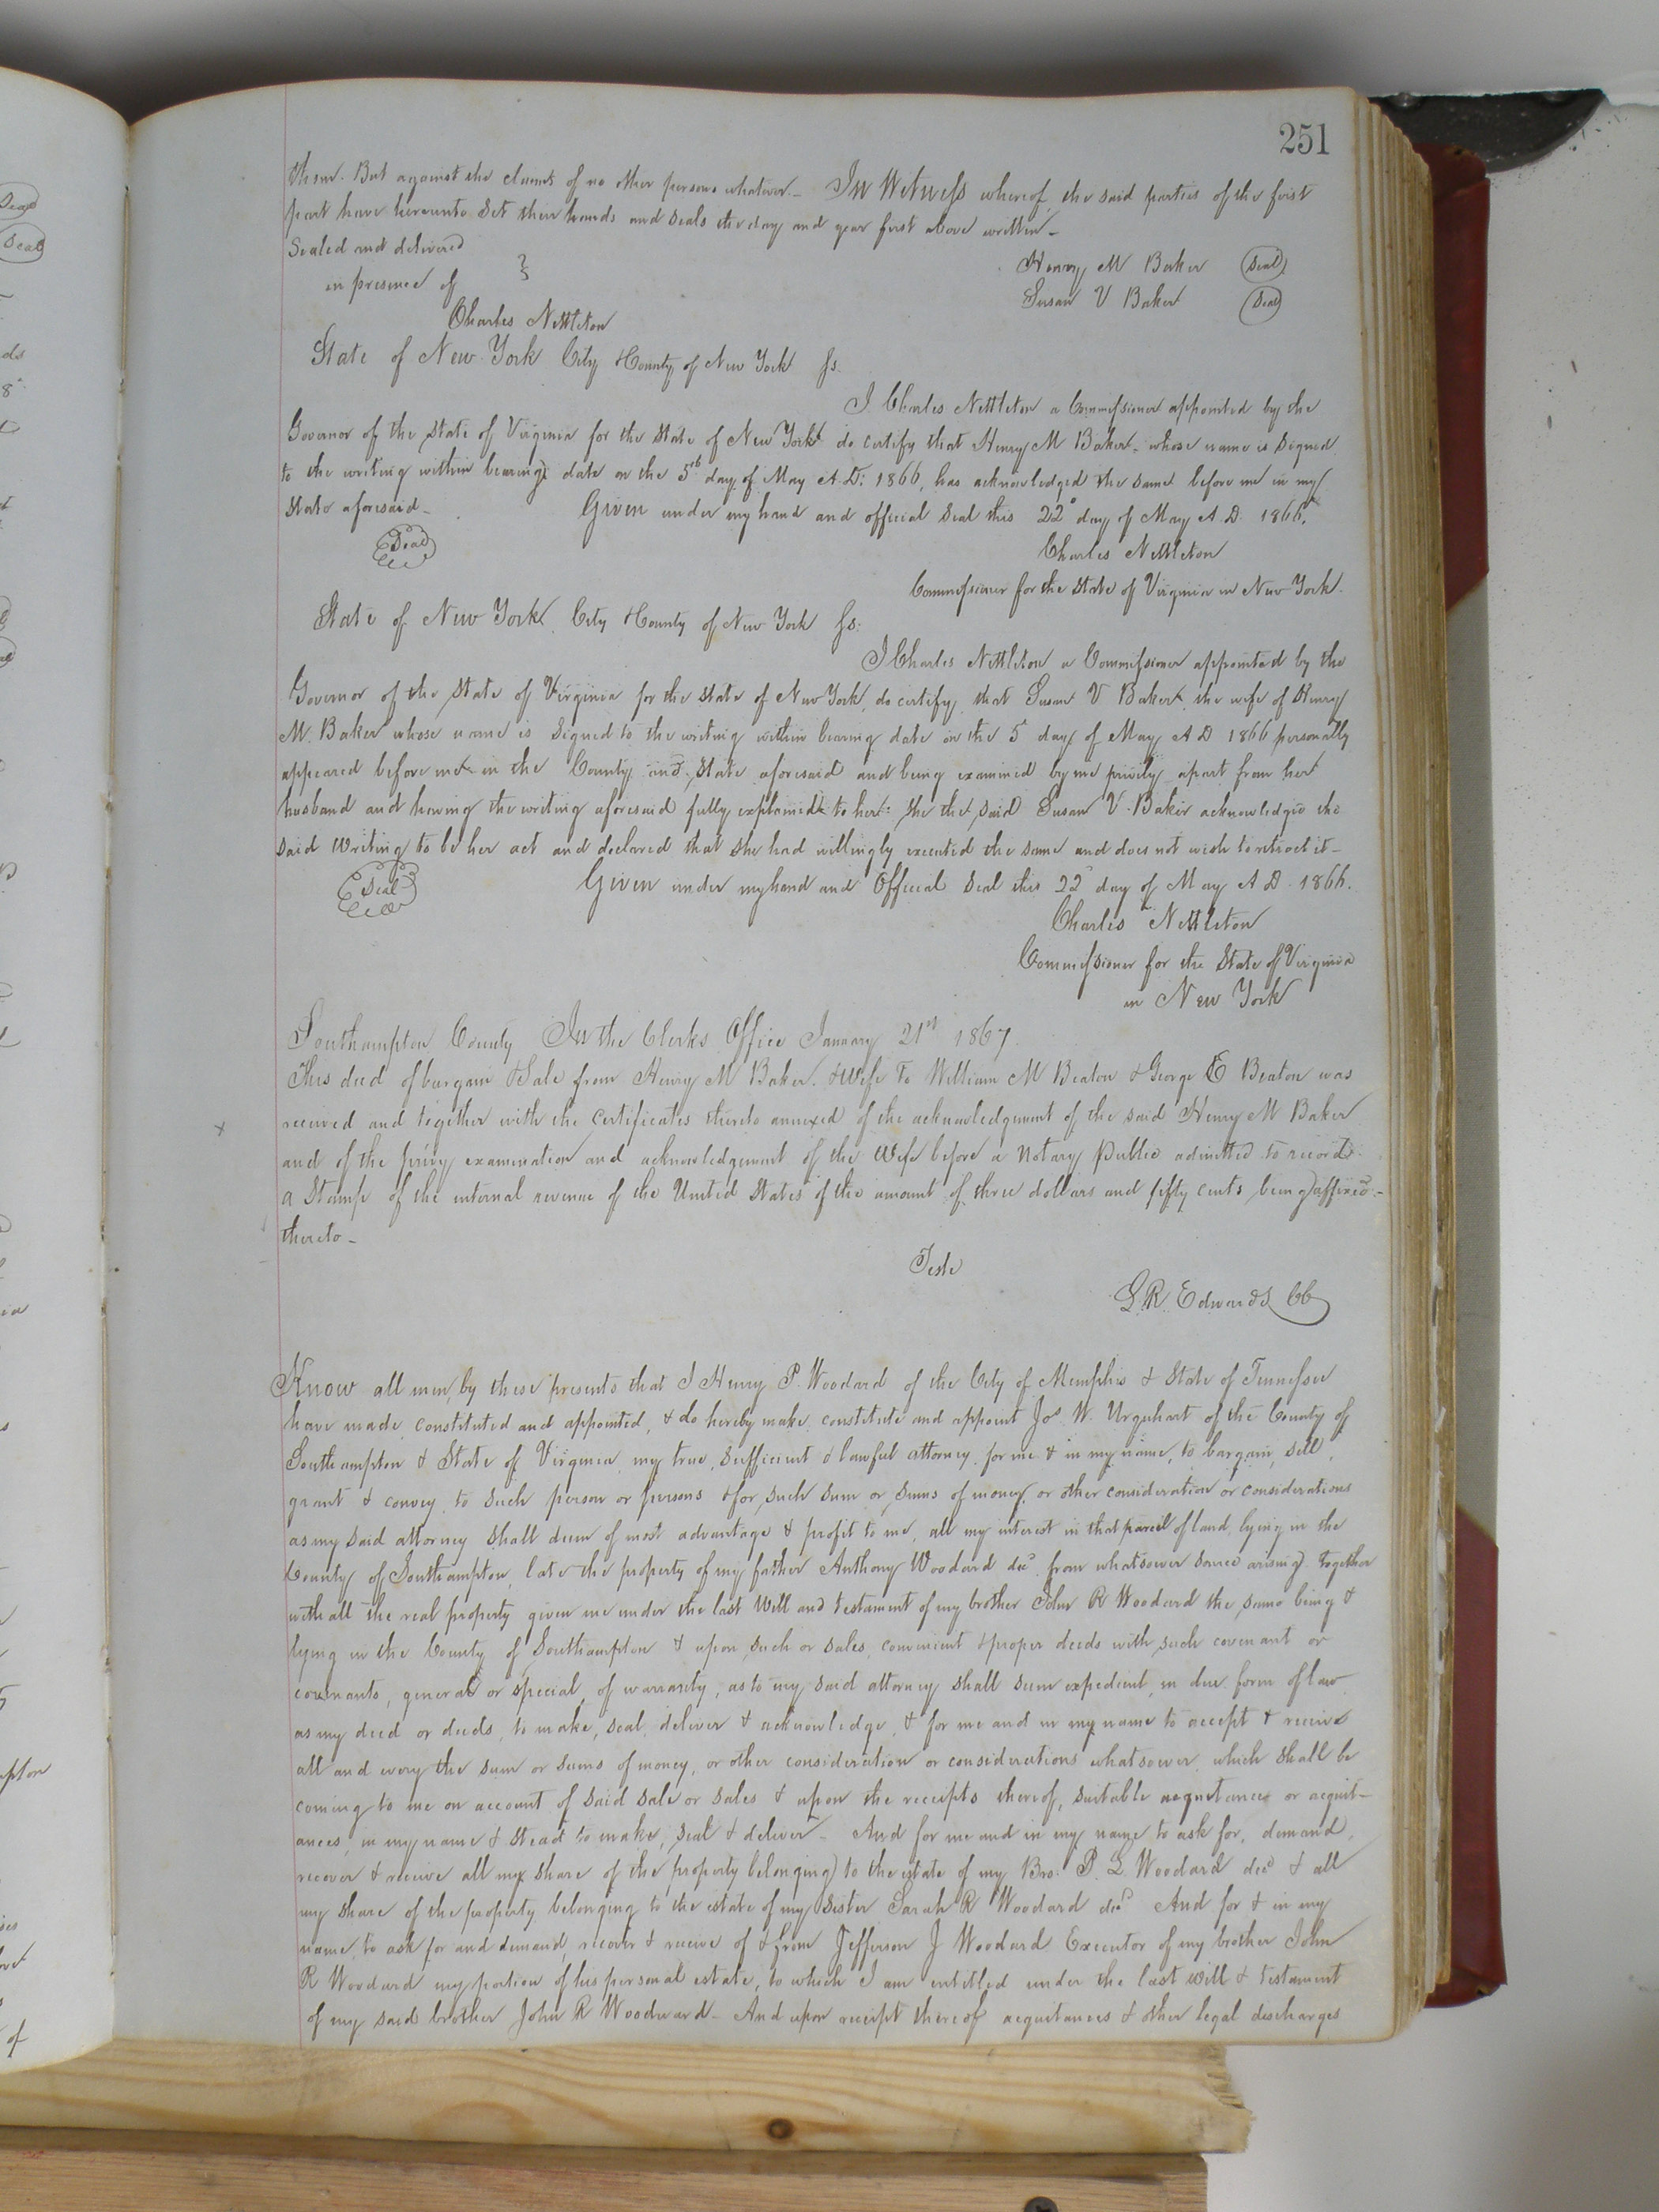 251
them. But against the claims of no other persons whatever - In Witness whereof, the said parties of the first
part have hereunto Set their hands and seals the day and year first above written -
Sealed and delivered
in presence of }
Henry M Baker (Seal)
Susan V Baker (Seal)
Charles Nettleton
State of New York City & County of New York Ss.
I Charles Nettleton a Commissioner appointed by the
Governor of the State of Virginia for the State of New York do certify that Henry M Baker, whose name is Signed
to the writing within bearing date on the 5th day of May A.D. 1866, has acknowledged the same before me in my
State aforesaid - Given under my hand and official Seal this 22d day of May A.D. 1866.
(Seal)
Charles Nettleton
Commissioner for the State of Virginia in New York.
State of New York City & County of New York Ss:
I Charles Nettleton a Commissioner appointed by the
Governor of the State of Virginia for the State of New York, do certify that Susan V Baker the wife of Henry
M. Baker whose name is Signed to the writing within bearing date on the 5 day of May A D 1866 personally
appeared before me in the County and State aforesaid and being examined by me privily apart from her
husband and having the writing aforesaid fully explained to her: She the said Susan V Baker acknowledged the
said Writing to be her act and declared that she had willingly executed the same and does not wish to retract it -
(Seal) Given under my hand and Official Seal this 22d day of May A D 1866.
Charles Nettleton
Commissioner for the State of Virginia
in New York
Southampton County In the Clerks Office January 21st 1867
This deed of bargain & Sale from Henry M Baker & Wife To William M Beaton & George E Beaton was
x received and together with the Certificates thereto annexed of the acknowledgement of the said Henry M Baker
and of the privy examination and acknowledgement of the Wife before a Notary Public admitted to record
a Stamp of the internal revenue of the United States of the amount of three dollars and fifty cents being affixed -
thereto -
Teste
L.R. Edwards CC
Know all men, by these presents that I Henry P. Woodard of the City of Memphis & State of Tennessee
have made, constituted and appointed, & do hereby make constitute and appoint Jos. W. Urquhart of the County of
Southampton & State of Virginia my true, Sufficient & lawful attorney for me & in my name, to bargain, sell,
grant & convey to Such person or persons & for such sum or sums of money, or other consideration or considerations
as my said attorney shall deem of most advantage & profit to me, all my interest in that parcel of land, lying in the
County of Southampton, late the property of my father Anthony Woodard decd. from whatsoever source arising together
with all the real property given me under the last Will and testament of my brother John R Woodard the same being &
lying in the County of Southampton & upon such or sales, convenient & proper deeds with such covenant or
covenants, general or special, of warranty, as to my said attorney shall seem expedient, in due form of law
as my deed or deeds, to make, seal, deliver & acknowledge, & for me and in my name to accept & receive
all and every the sum or sums of money, or other consideration or considerations whatsoever, which shall be
coming to me on account of said sale or sales & upon the receipts thereof, suitable acquetance or acquit-
ances, in my name & Stead to make, seal & deliver - And for me and in my name to ask for, demand,
recover & receive all my share of the property belonging to the estate of my Bro: P. L Woodard decd & all
my share of the property belonging to the estate of my Sister Sarah R Woodard decd And for & in my
name, to ask for and demand, recover & receive of & from Jefferson J Woodard Executor of my brother John
R Woodard my portion of his personal estate, to which I am entitled under the last will & testament
of my said brother John R Woodward - And upon receipt thereof acquetances & other legal discharges